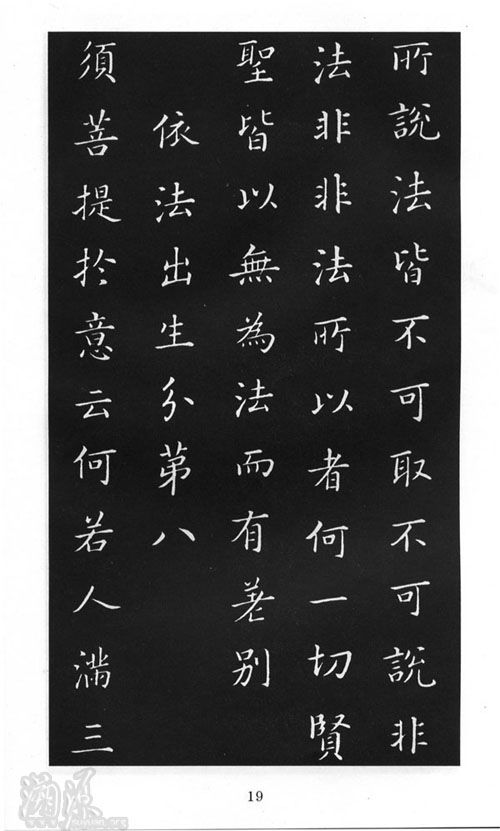 所說法皆不可取不可說非
法非非法所以者何一切賢
聖皆以無為法而有差别
依法出生分第八
須菩提於意云何若人滿三
19
溯源
www.suyuan.org